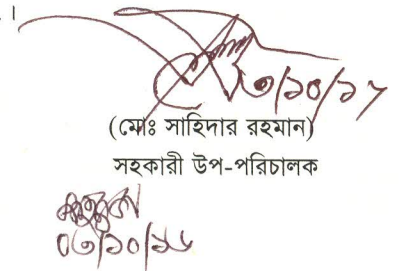 ।
৩/১০/১৭
(মোঃ সাহিদার রহমান)
সহকারী উপ-পরিচালক
০৩/১০/১৮